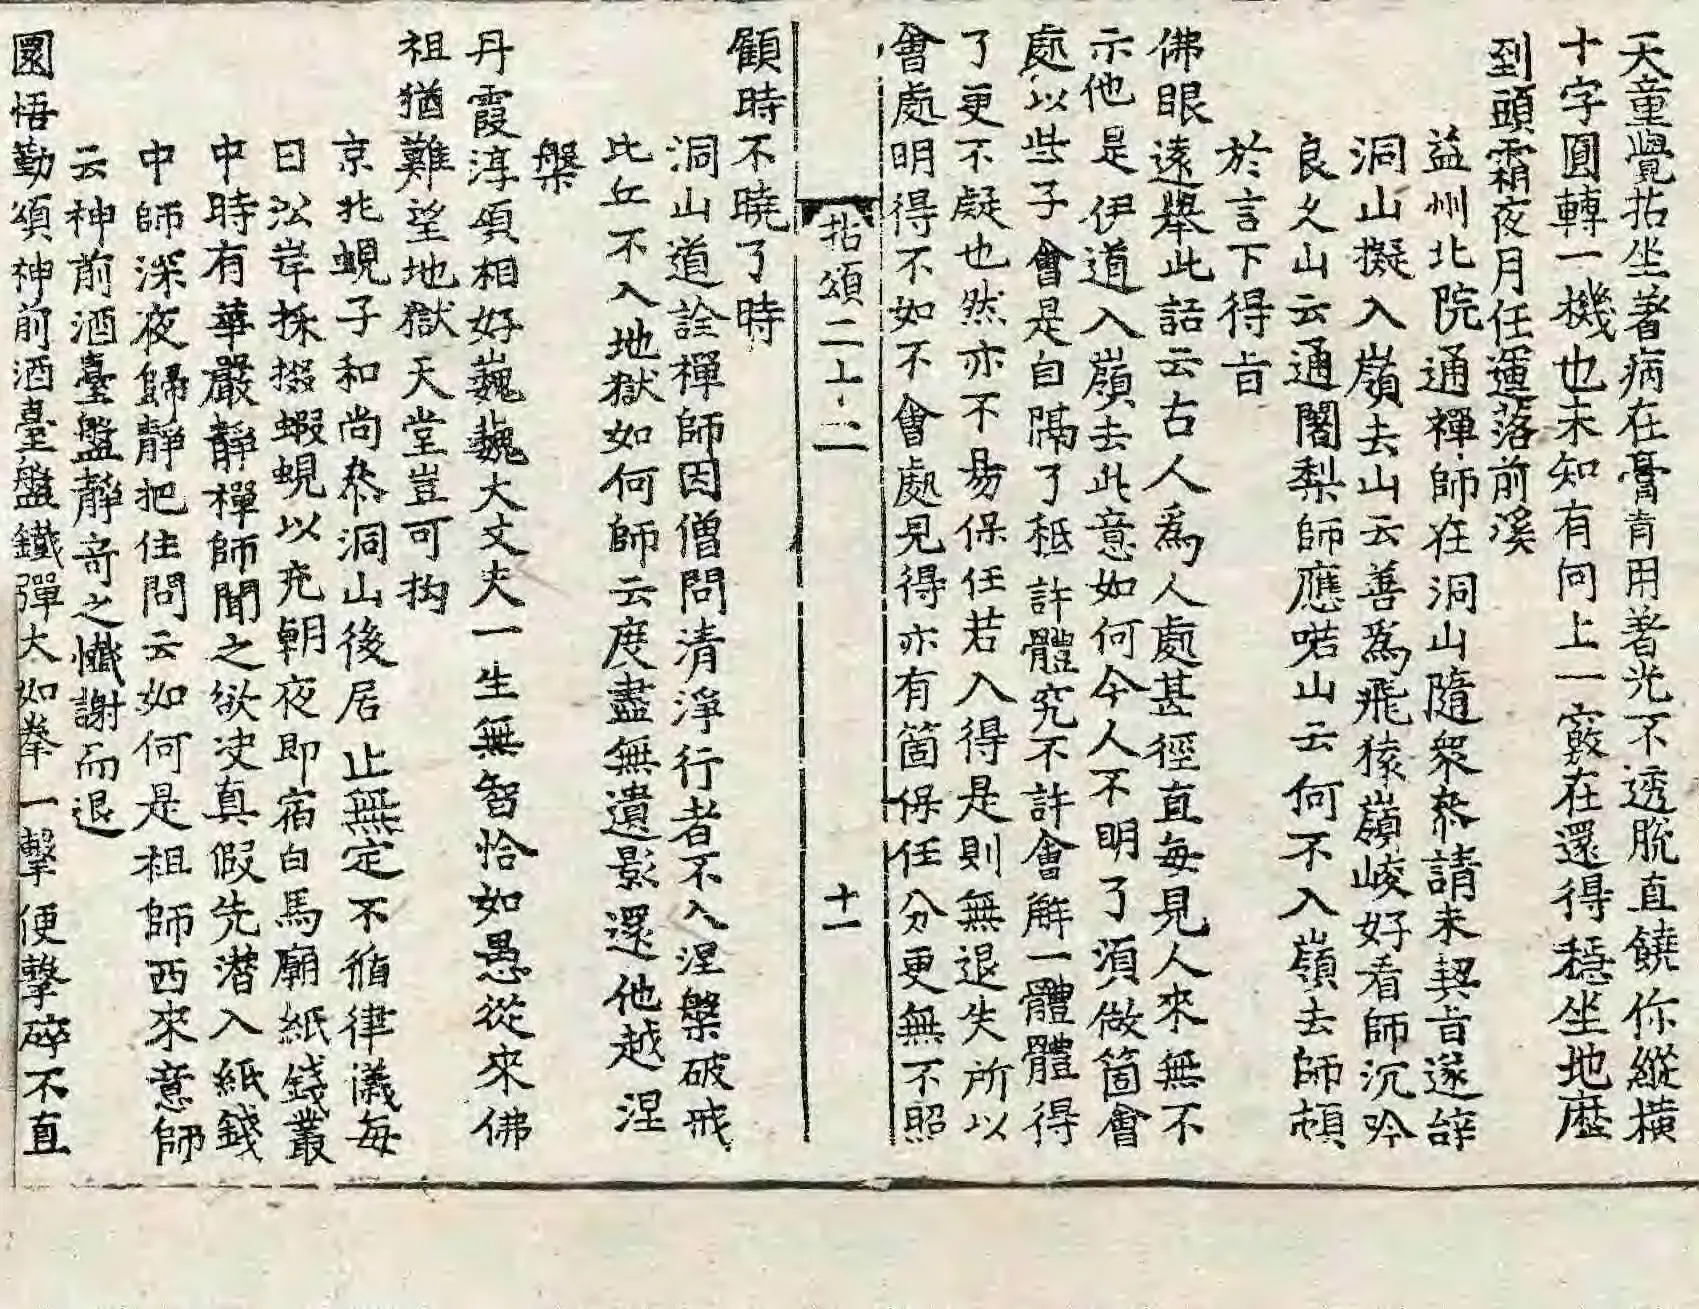 天童覺拈坐著病在膏肓用著光不透脫直饒你縱橫
十字圓轉一機也未知有向上一竅在還得穩坐地歷
到頭霜夜月任運落前溪
益州北院通禪師在洞山隨衆叅請未契旨遂辝
洞山擬入嶺去山云善爲飛猿嶺峻好看師沉吟
良久山云通闍梨師應喏山云何不入嶺去師頓
於言下得旨
佛眼遠舉此話云古人爲人處甚徑直每見人來無不
示他是伊道入嶺去此意如何今人不明了須做箇會
處以些子會是自隔了秪許體究不許會解一體體得
了更不疑也然亦不易保任若入得是則無退失所以
會處明得不如不會處見得亦有箇保任分更無不照
拈頌二十二 十一
顧時不曉了時
洞山道詮禪師因僧問清淨行者不入涅槃破戒
比丘不入地獄如何師云度盡無遺影還他越涅
槃
丹霞淳頌相好巍巍大丈夫一生無智恰如愚從來佛
祖猶難望地獄天堂豈可拘
京兆蜆子和尚叅洞山後居止無定不循律儀每
日沿岸採掇蝦蜆以充朝夜即宿白馬廟紙錢叢
中時有華嚴靜禪師聞之欲決真假先潛入紙錢
中師深夜歸靜把住問云如何是祖師西來意師
云神前酒臺盤靜竒之懺謝而退
圜悟勤頌神前酒臺盤鐵彈大如拳一擊便擊碎不直